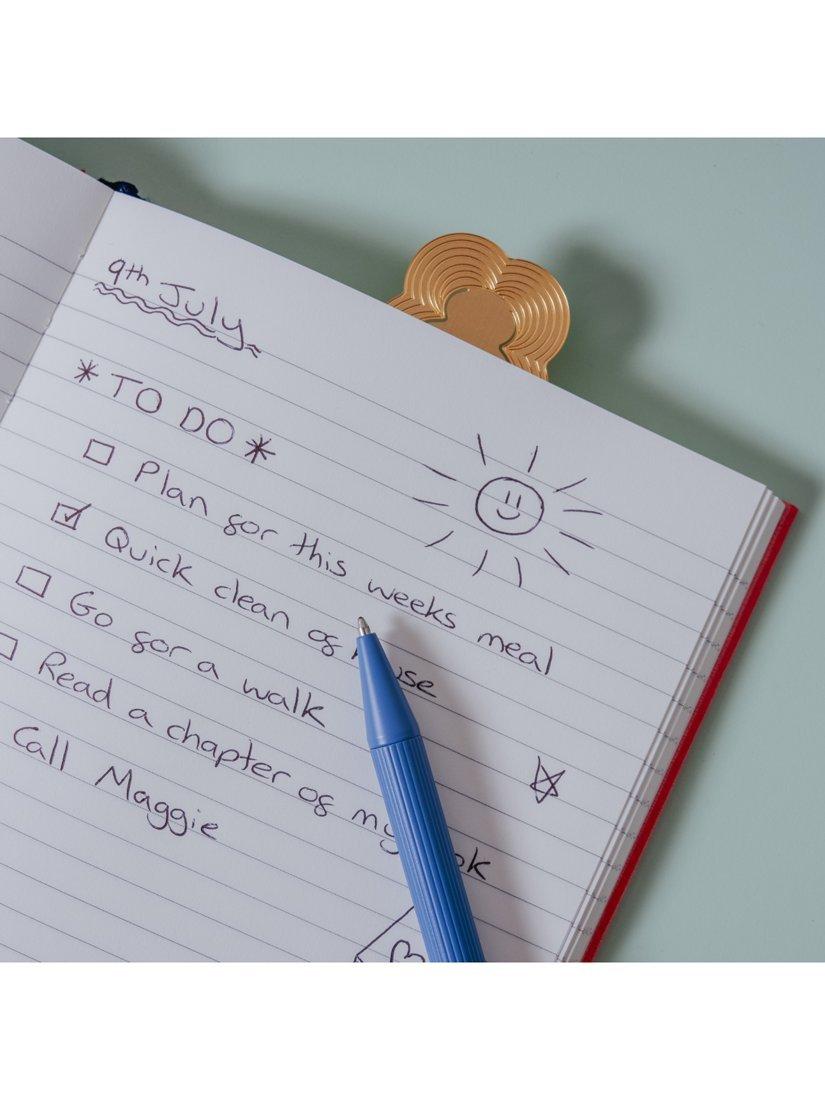 9th July
*TO DO*
☐ Plan for this weeks meal
☑ Quick clean of
☐ Go for a walk
☐ Read a chapter of my
Call Maggie